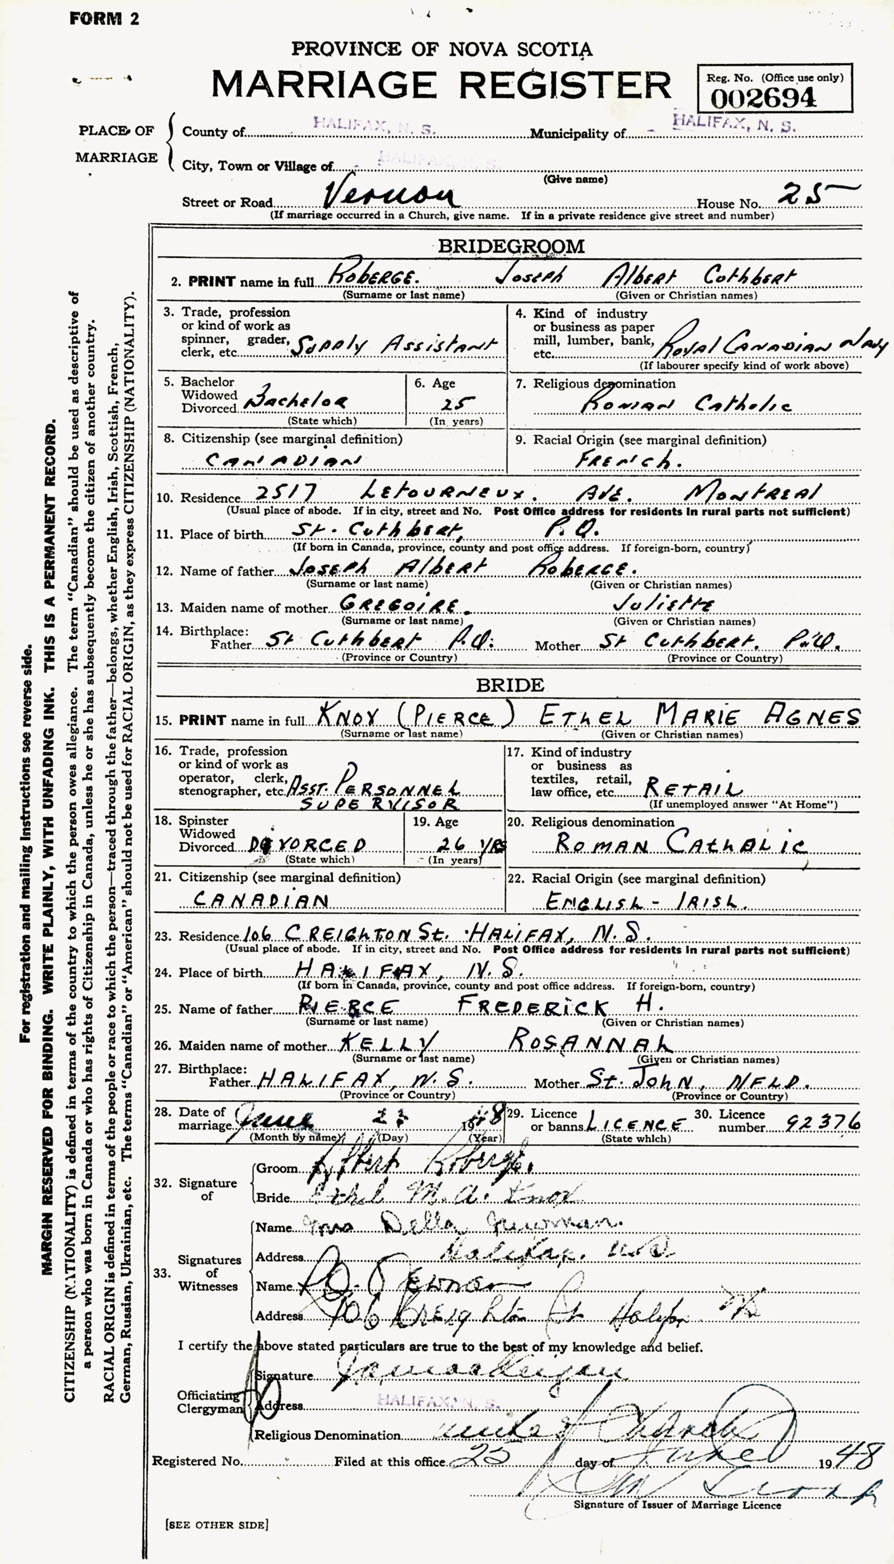 FORM 2
PROVINCE OF NOVA SCOTIA
MARRIAGE REGISTER
Reg. No. (Office use only)
002694
PLACE OF MARRIAGE
County of HALIFAX, N. S. Municipality of HALIFAX, N. S.
City, Town or Village of HALIFAX, N. S.
(Give name)
Street or Road Vernon House No. 25
(If marriage occurred in a Church, give name. If in a private residence give street and number)
BRIDEGROOM
2. PRINT name in full ROBERGE. JOSEPH ALBERT CUTHBERT
(Surname or last name) (Given or Christian names)
3. Trade, profession or kind of work as spinner, grader, clerk, etc. SUPPLY ASSISTANT
4. Kind of industry or business as paper mill, lumber, bank, etc. ROYAL CANADIAN NAVY
(If labourer specify kind of work above)
5. Bachelor Widowed Divorced Bachelor
(State which)
6. Age 25
(In years)
7. Religious denomination ROMAN CATHOLIC
8. Citizenship (see marginal definition)
CANADIAN
9. Racial Origin (see marginal definition)
FRENCH.
10. Residence 2517 LETOURNEUX. AVE. MONTREAL
(Usual place of abode. If in city, street and No. Post Office address for residents in rural parts not sufficient)
11. Place of birth ST. CUTHBERT, P.Q.
(If born in Canada, province, county and post office address. If foreign-born, country)
12. Name of father JOSEPH ALBERT ROBERGE.
(Surname or last name) (Given or Christian names)
13. Maiden name of mother GREGOIRE. JULIETTE
(Surname or last name) (Given or Christian names)
14. Birthplace:
Father ST CUTHBERT P.Q. Mother ST CUTHBERT. P.Q.
(Province or Country) (Province or Country)
BRIDE
15. PRINT name in full KNOX (PIERCE) ETHEL MARIE AGNES
(Surname or last name) (Given or Christian names)
16. Trade, profession or kind of work as operator, clerk, stenographer, etc. ASST. PERSONNEL SUPERVISOR
17. Kind of industry or business as textiles, retail, law office, etc. RETAIL
(If unemployed answer "At Home")
18. Spinster Widowed Divorced DIVORCED
(State which)
19. Age 26 YRS
(In years)
20. Religious denomination
ROMAN CATHOLIC
21. Citizenship (see marginal definition)
CANADIAN
22. Racial Origin (see marginal definition)
ENGLISH - IRISH.
23. Residence 106 CREIGHTON St. HALIFAX, N.S.
(Usual place of abode. If in city, street and No. Post Office address for residents in rural parts not sufficient)
24. Place of birth HALIFAX, N.S.
(If born in Canada, province, county and post office address. If foreign-born, country)
25. Name of father PIERCE FREDERICK H.
(Surname or last name) (Given or Christian names)
26. Maiden name of mother KELLY ROSANNAH
(Surname or last name) (Given or Christian names)
27. Birthplace:
Father HALIFAX, N.S. Mother St. JOHN, NFLD.
(Province or Country) (Province or Country)
28. Date of marriage June 1948
(Month by name) (Day) (Year)
29. Licence or banns LICENCE
(State which)
30. Licence number 92376
32. Signature of
Groom Albert Roberge.
Bride Ethel M. A. Knox
33. Signatures of Witnesses
Name Mrs Della Newman.
Address Halifax. N.S
Name
Address 106 Creighton St Halifax NS
I certify the above stated particulars are true to the best of my knowledge and belief.
Officiating Clergyman
Signature
Address HALIFAX, N. S.
Religious Denomination United Church
Registered No. Filed at this office 25 day of June 1948
Signature of Issuer of Marriage Licence
[SEE OTHER SIDE]
For registration and mailing instructions see reverse side.
MARGIN RESERVED FOR BINDING. WRITE PLAINLY, WITH UNFADING INK. THIS IS A PERMANENT RECORD.
CITIZENSHIP (NATIONALITY) is defined in terms of the country to which the person owes allegiance. The term "Canadian" should be used as descriptive of
a person who was born in Canada or who has rights of Citizenship in Canada, unless he or she has subsequently become the citizen of another country.
RACIAL ORIGIN is defined in terms of the people or race to which the person—traced through the father—belongs, whether English, Irish, Scottish, French,
German, Russian, Ukrainian, etc. The terms "Canadian" or "American" should not be used for RACIAL ORIGIN, as they express CITIZENSHIP (NATIONALITY).